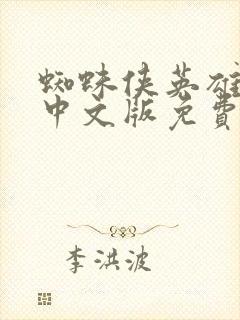 蜘蛛侠英雄
中文版免費
李洪波